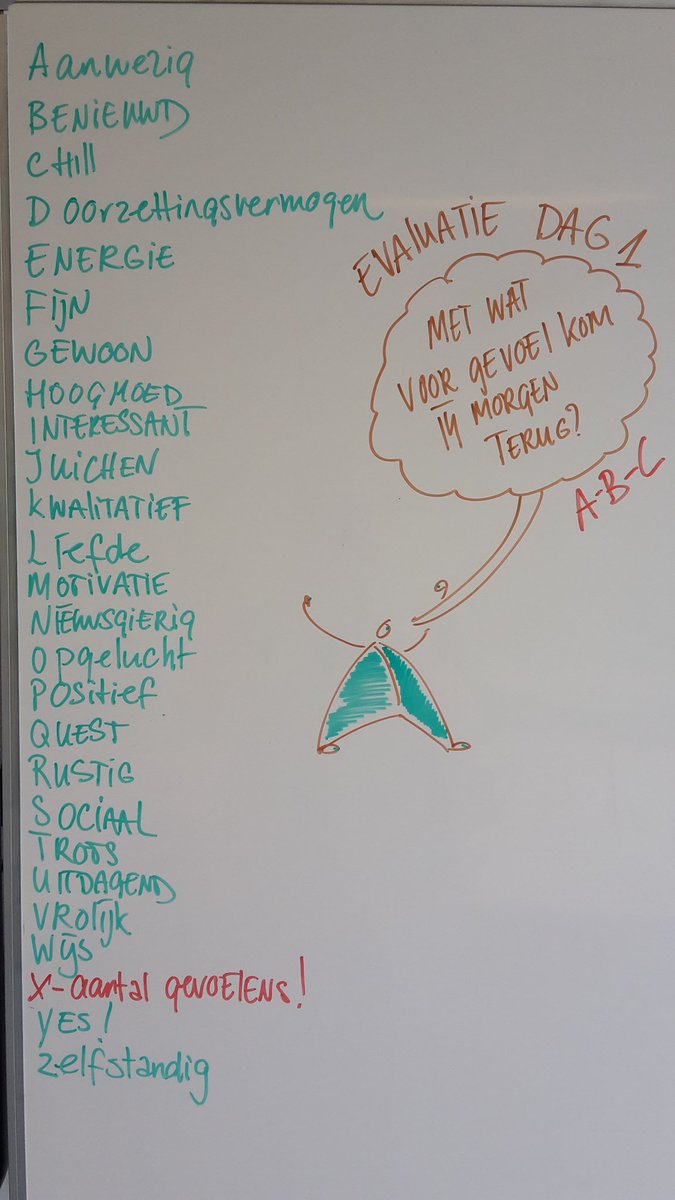 Aanwezig
BENIEUWD
CHill
Doorzettingsvermogen
ENERGIE
FIJN
GEWOON
HOOGMOED
INTERESSANT
JUICHEN
KWALITATIEF
LIefde
MOTIVATIE
NIEUWSGIERIG
Opgelucht
POSitief
QUEST
RUSTIG
SOCIAAL
TROTS
UITDAGEND
VROLIJK
WIJS
X-aantal GEVOELENS!
YES!
zelfstandig
EVALUATIE DAG 1
MET WAT
VOOR GEVOEL KOM
IK MORGEN
TERUG?
A-B-C